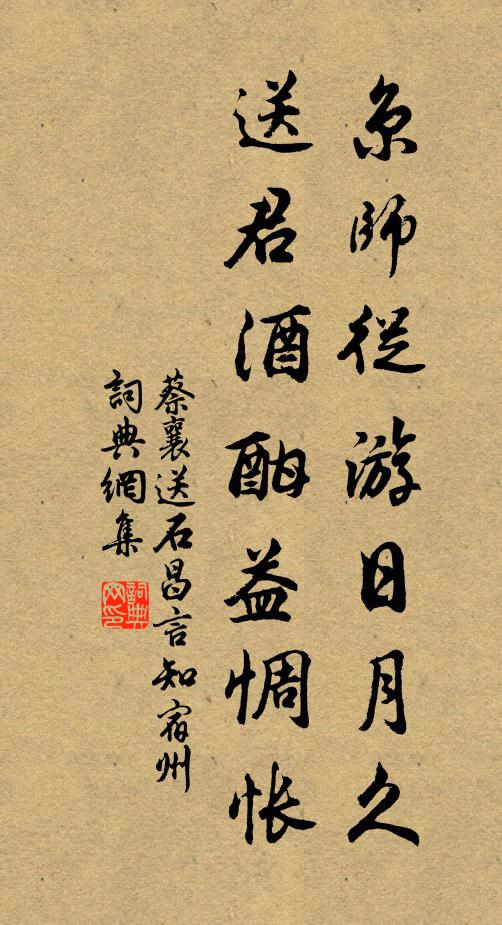 京師從游日月久
送君酒酣益惆悵
蔡襄送石昌言知宿州
詞典網集
詞典網印